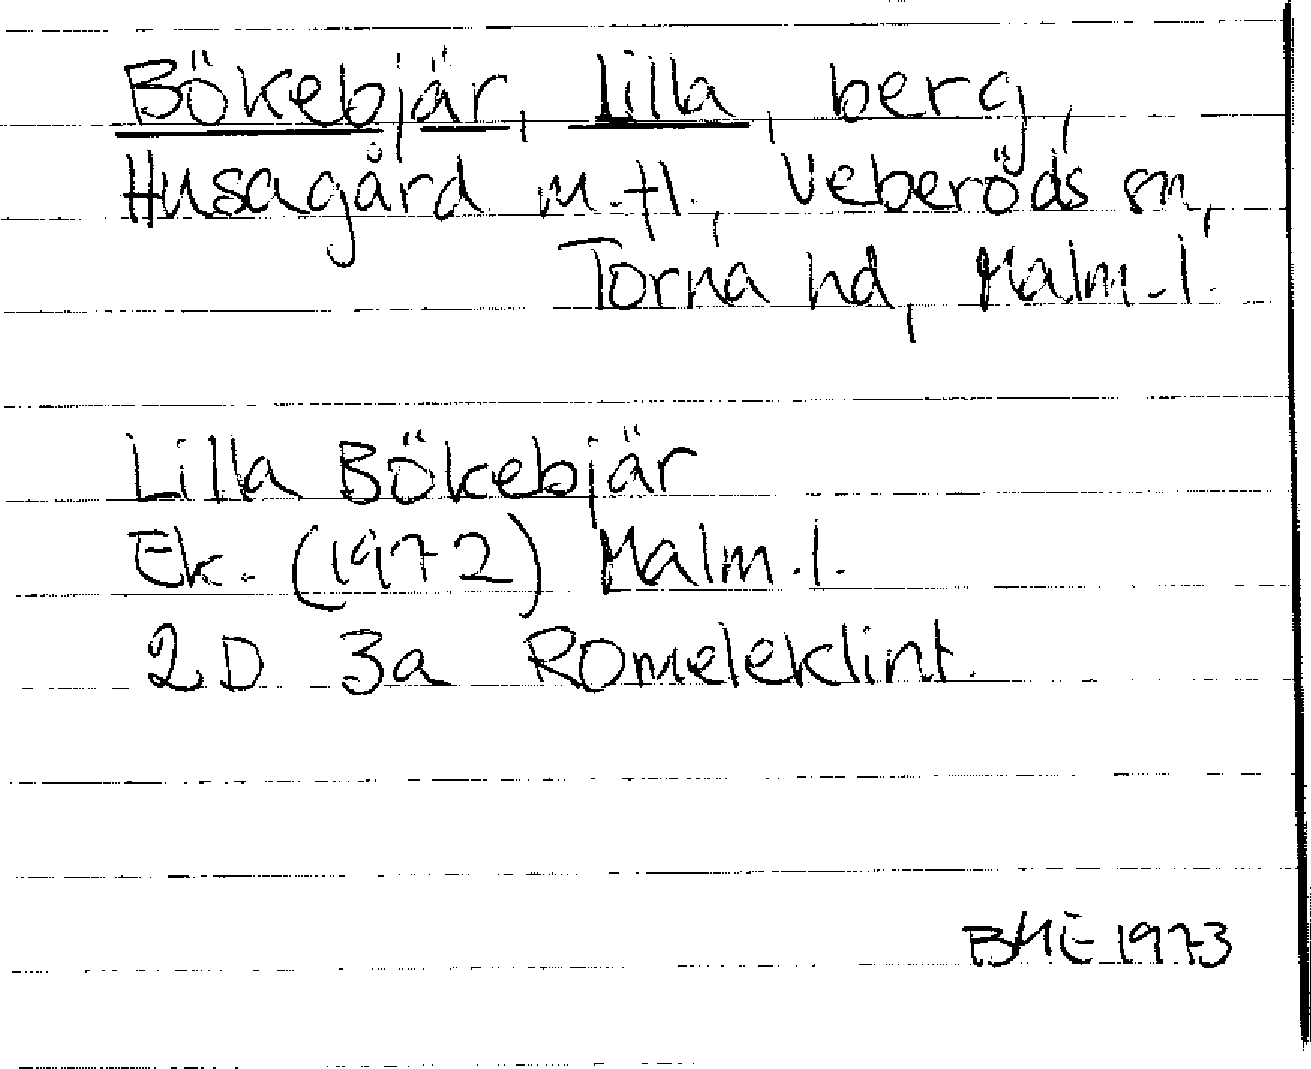 Bökebjär, Lilla, berg,
Husagård m. fl., Veberöds sn,
Torna hd, Malm. l.
Lilla Bökebjär
Ek. (1972) Malm. l.
2D 3a Romeleklint.
BME 1973